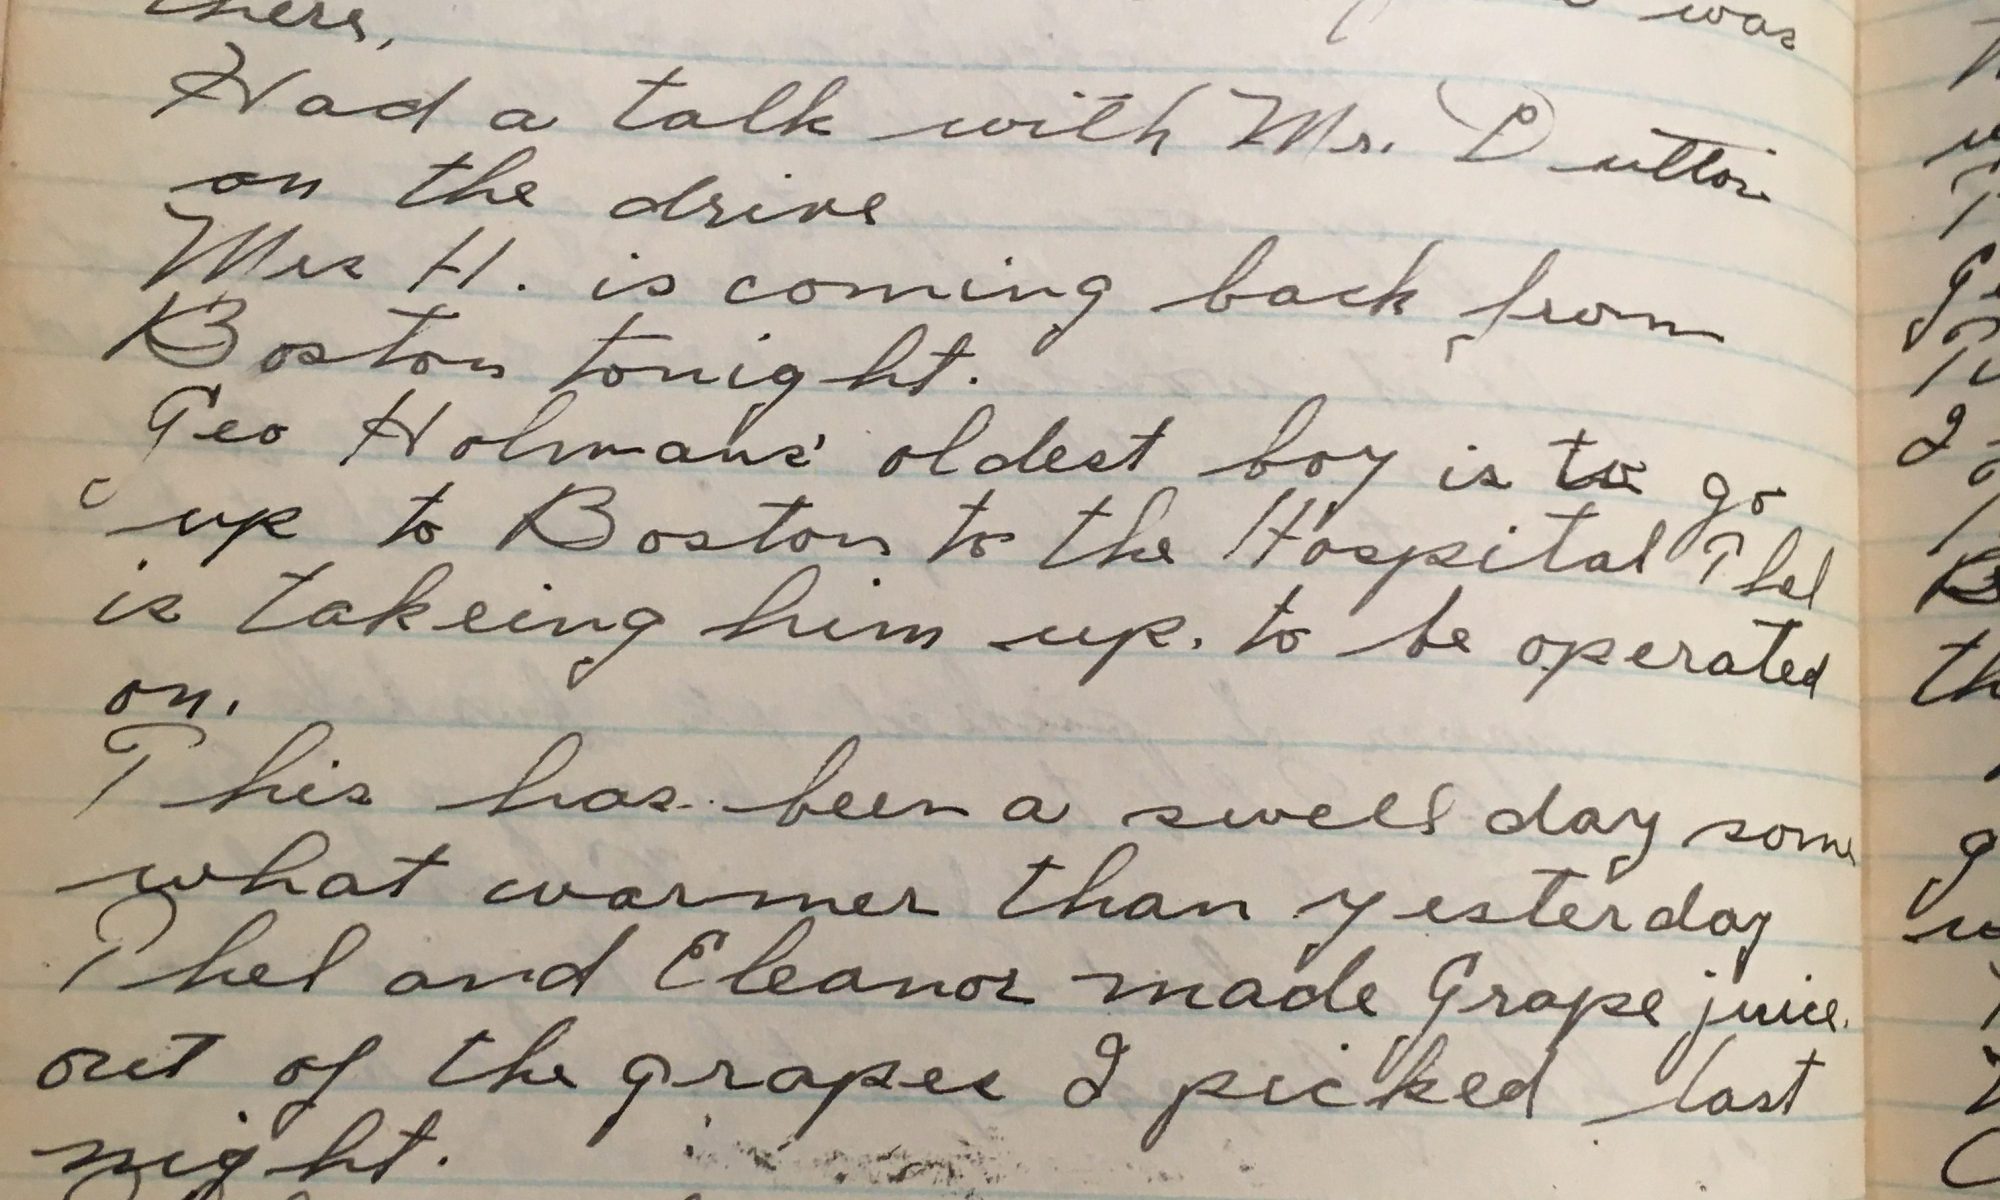 there,
was
Had a talk with Mr. Dutton
on the drive
Mrs H. is coming back from
Boston tonight.
Geo Holmans' oldest boy is to go
up to Boston to the Hospital Thel
is takeing him up. to be operated
on.
This has been a swell day some
what warmer than yesterday
Thel and Eleanor made Grape juice.
out of the grapes I picked last
night.